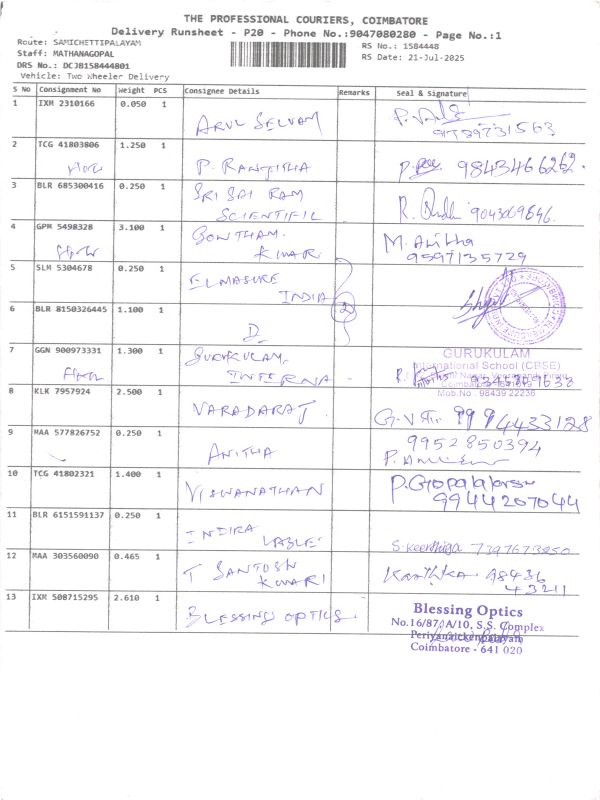 THE PROFESSIONAL COURIERS, COIMBATORE
Delivery Runsheet - P20 - Phone No.:9047080280 - Page No.:1
Route: SAMICHETTIPALAYAM
Staff: MATHANAGOPAL
DRS No.: DCJB158444801
Vehicle: Two Wheeler Delivery
RS No.: 1584448
RS Date: 21-Jul-2025
S No Consignment No Weight PCS Consignee Details Remarks Seal & Signature
1 IXM 2310166 0.050 1 ARUL SELVAM
2 TCG 41803806 1.250 1 P. RANJITHA 9843466262
3 BLR 685300416 0.250 1 SRI SAI RAM
SCIENTIFIC
4 GPM 5498328 3.100 1 GOWTHAM
KUMAR M. Anitha
9597135729
5 SLM 5304678 0.250 1 ELMASURE
INDIA
2
6 BLR 8150326445 1.100 1 D.
7 GGN 900973331 1.300 1 GURUKULAM
INTERNA
GURUKULAM
International School (CBSE)
Mob.No : 98439 22236
8 KLK 7957924 2.500 1 VARADARAJ 9994433128
9 MAA 577826752 0.250 1 ANITHA 9952850394
10 TCG 41802321 1.400 1 VISWANATHAN P. Gopalaswamy
9944207044
11 BLR 6151591137 0.250 1 INDIRA
LABLE S. Keerthiga 7397673250
12 MAA 303560090 0.465 1 T SANTOSH
KUMARI Karthika 98436
43211
13 IXM 508715295 2.610 1 BLESSING OPTICS
Blessing Optics
No.16/87A/10, S.S. Complex
Periyanaickenpalayam
Coimbatore - 641 020